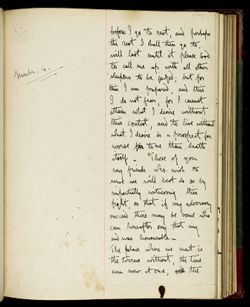 Number. 4.
before I go to rest, and perhaps
the rest I shall then go to,
will last until it please God
to call me up with all other
sleepers to be judged; but for
this I am prepared, and this
I do not fear, for I cannot
attain what I desire without
this contest and to live without
what I desire is a prospect far
worse to me than death
itself. Those of you
my friends who wish to
serve me will best do so by
impartially witnessing this
fight, so that if my adversary
success there may be some who
can hereafter say that my
end was honourable.
The place where we meet is
the terrace without, the time
even now at one, the